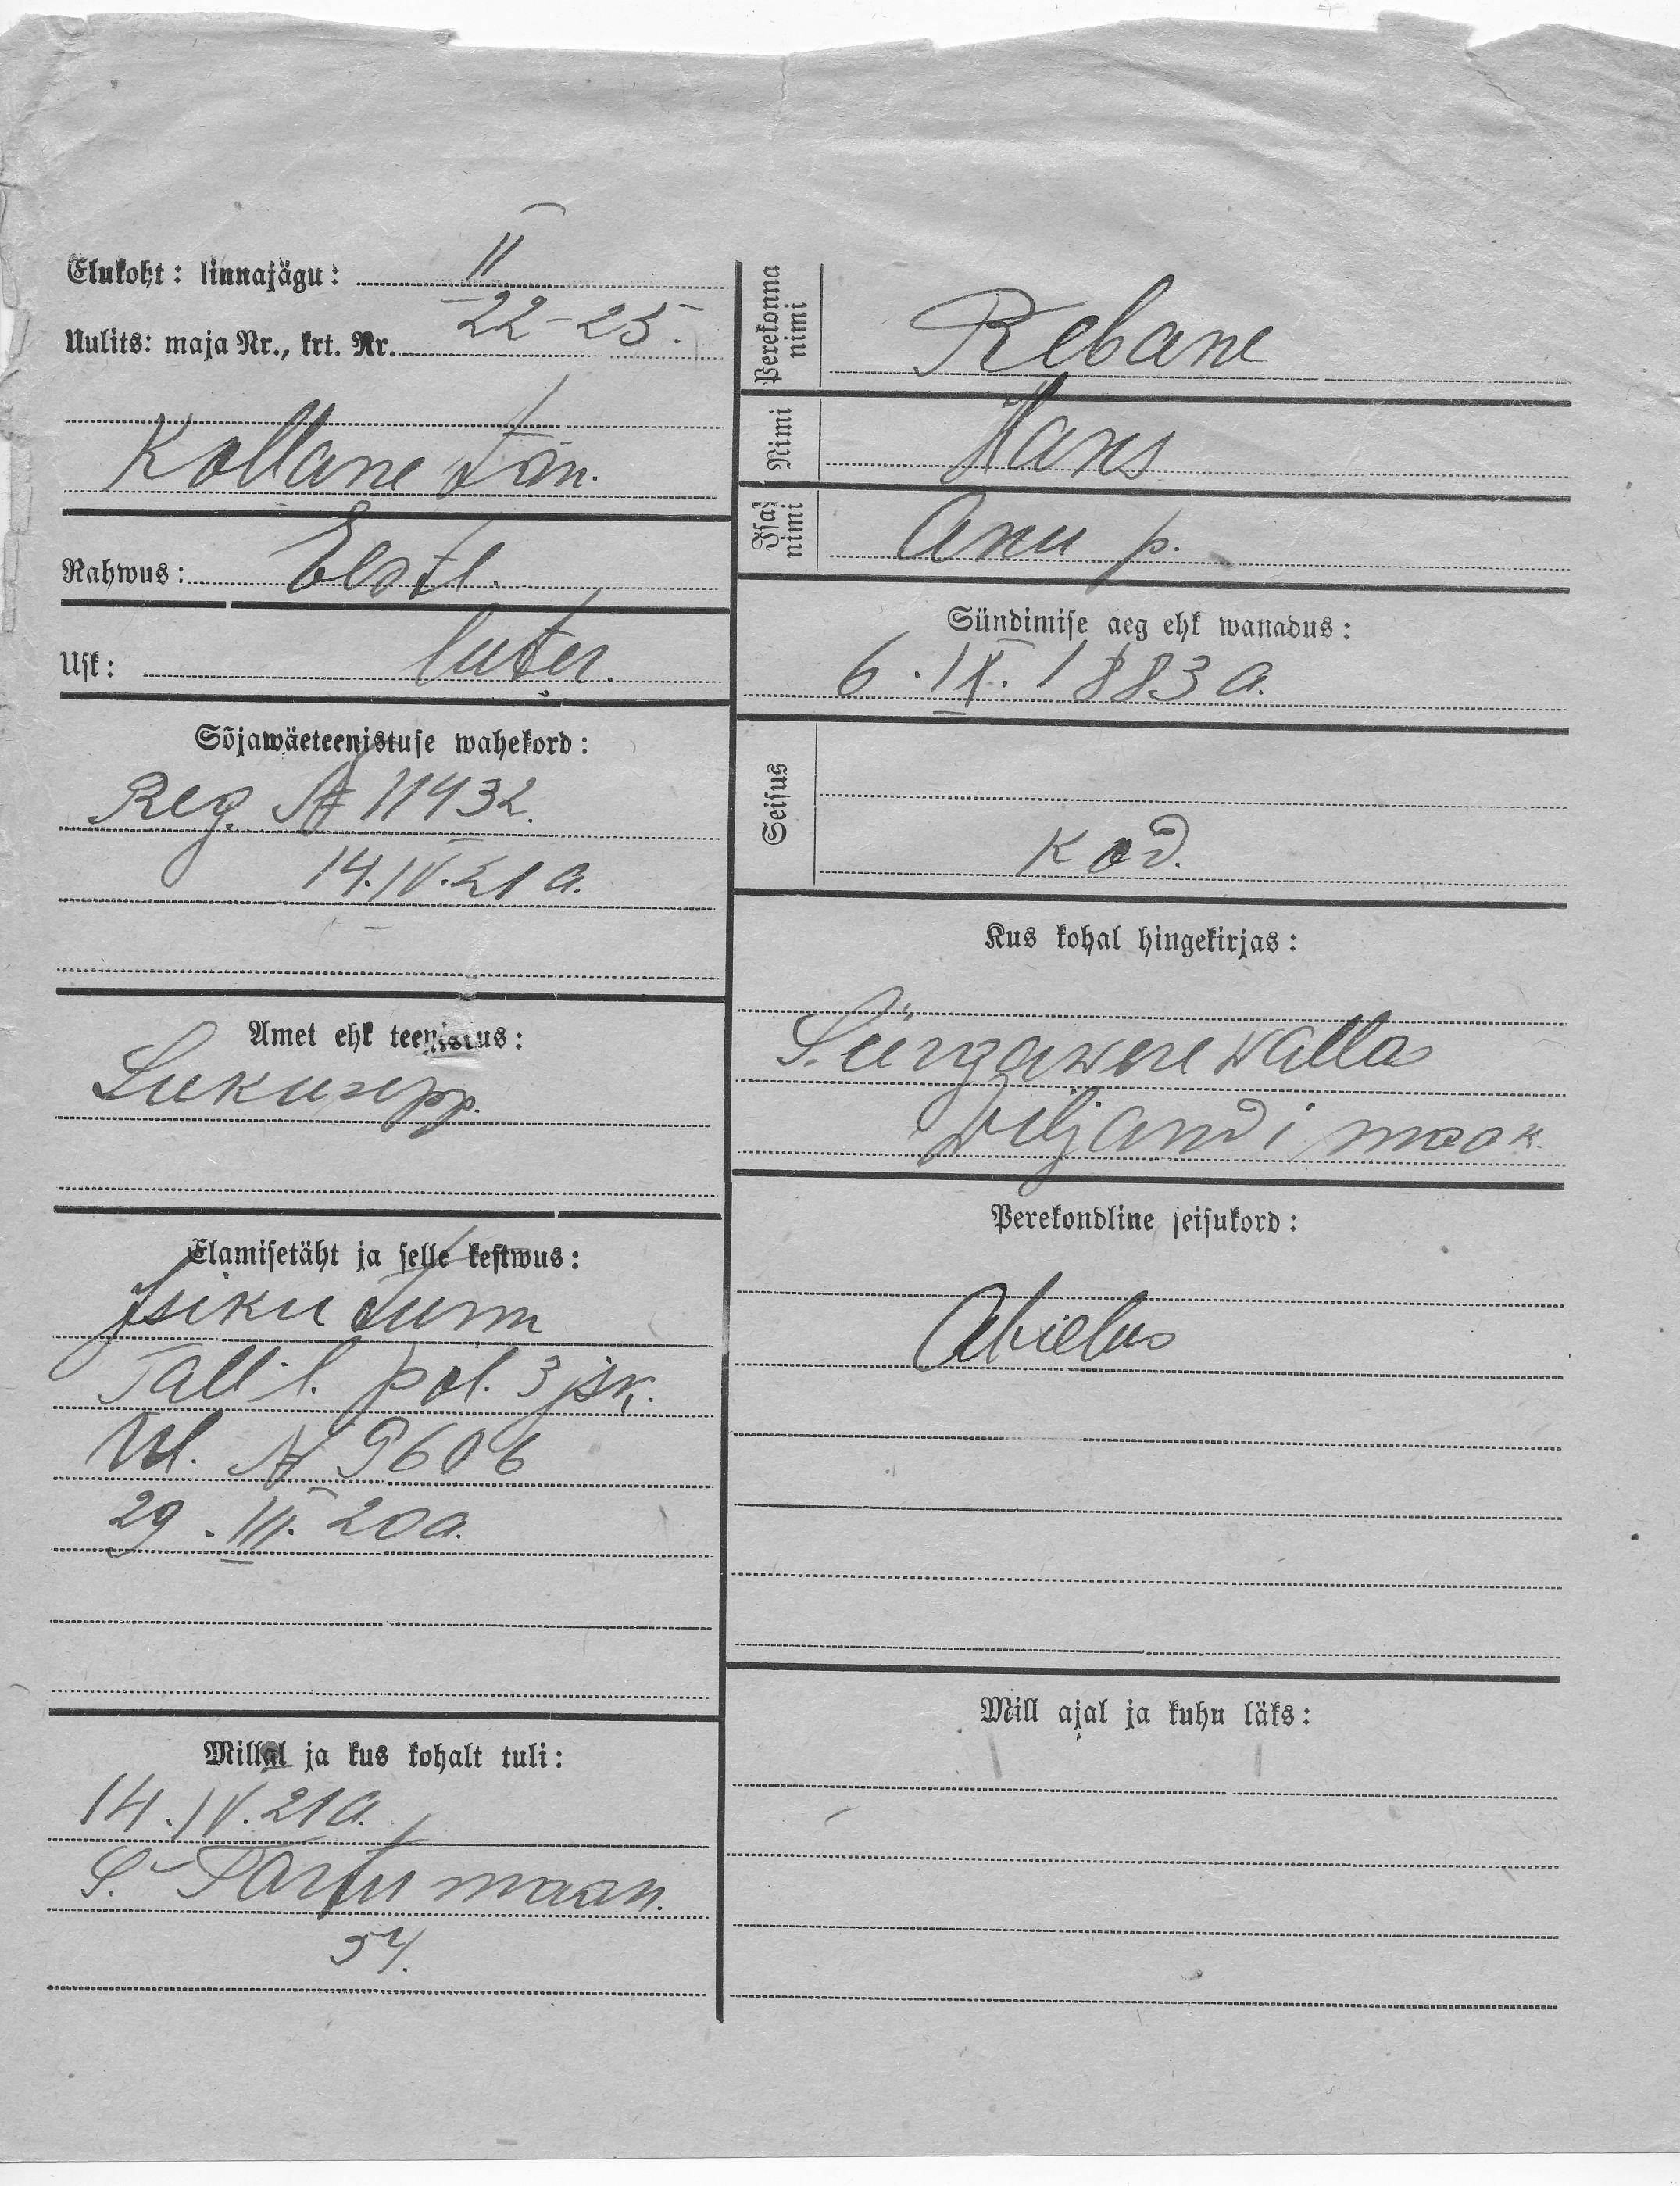 Elukoht: linnajägu: II
Uulits: maja Nr., krt. Nr. 22-25.
Kollane tän.
Rahwus: Eestl.
Usk: luter.
Sõjawäeteenistuse wahekord:
Reg. № 11432.
14.IV.21 a.
Amet ehk teenistus:
Lukusepp.
Elamisetäht ja selle kestwus:
Isiku tunn
Tall. l. pol. 3 jsk.
wl. № 9606
29.VII.20 a.
Millal ja kus kohalt tuli:
14.IV.21 a.
S. Tartu maan.
54.
Perekonna nimi
Rebane
Nimi
Hans
Isa nimi
Anu p.
Sündimise aeg ehk wanadus:
6.IX.1883 a.
Seisus
kod.
Kus kohal hingekirjas:
Sürgawere walla
Wiljandi maak.
Perekondline seisukord:
Abielus
Mill ajal ja kuhu läks: